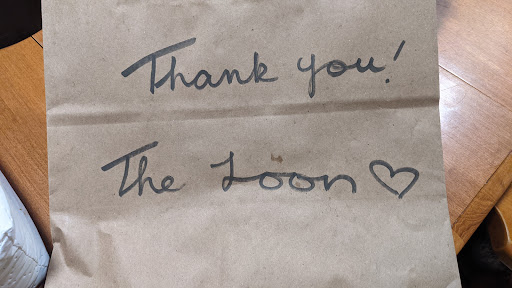 Thank you!
The Loon ♡